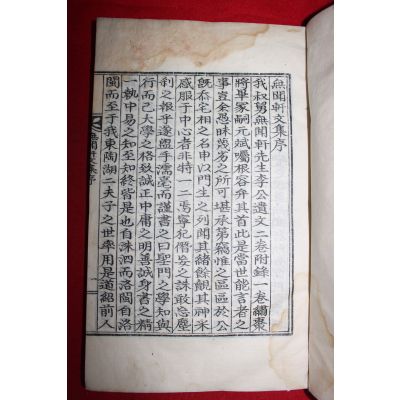 無聞軒文集序
我叔舅無聞軒先生李公遺文二卷附錄一卷編裒
將畢家嗣元斌囑根容弁其首此是當世能言者之
事豈余愚昧蔑劣之所可堪承第竊惟之區區於公
旣忝宅相之名申以門生之列聞其緖餘覿其神采
感服于中心者非特一二焉寧犯僭妄之誅敢忘塵
刹之報乎遂盥手濡毫而謹書之曰聖門之學知與
行而已大學之格致誠正中庸之明善誠身書之精
一執中易之知至知終皆是也自洙泗而洛閩自洛
閩而至于我東陶湖二夫子之世率用是道紹前人
無聞軒文集序